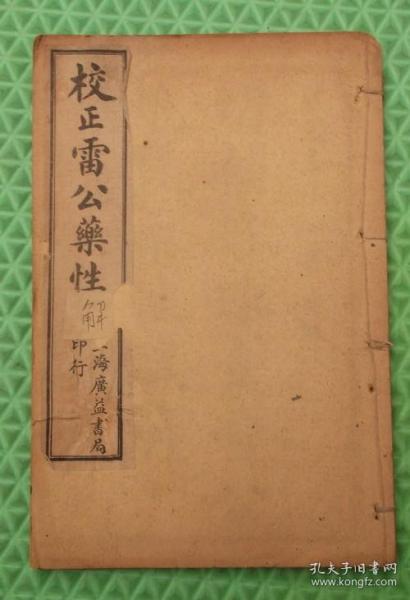 校正雷公藥性解
上海廣益書局
印行
孔夫子旧书网
www.kongfz.com